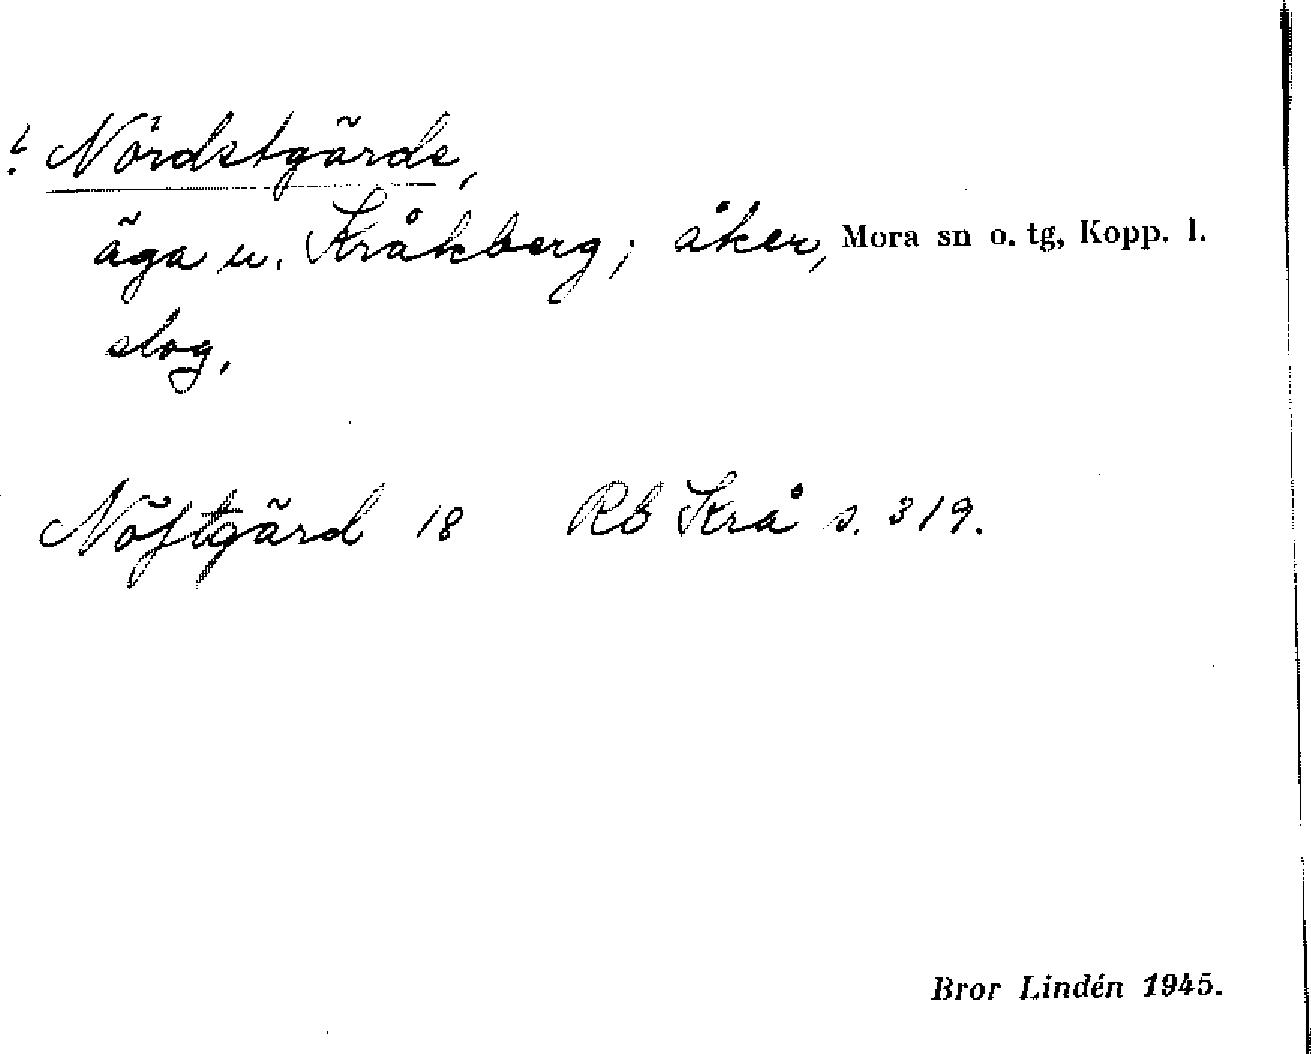 ? Nördstgärde,
äga u. Kråkberg; åker, Mora sn o. tg, Kopp. l.
slog.
Nöstgärd 18 Rb Krå s. 319.
Bror Lindén 1945.